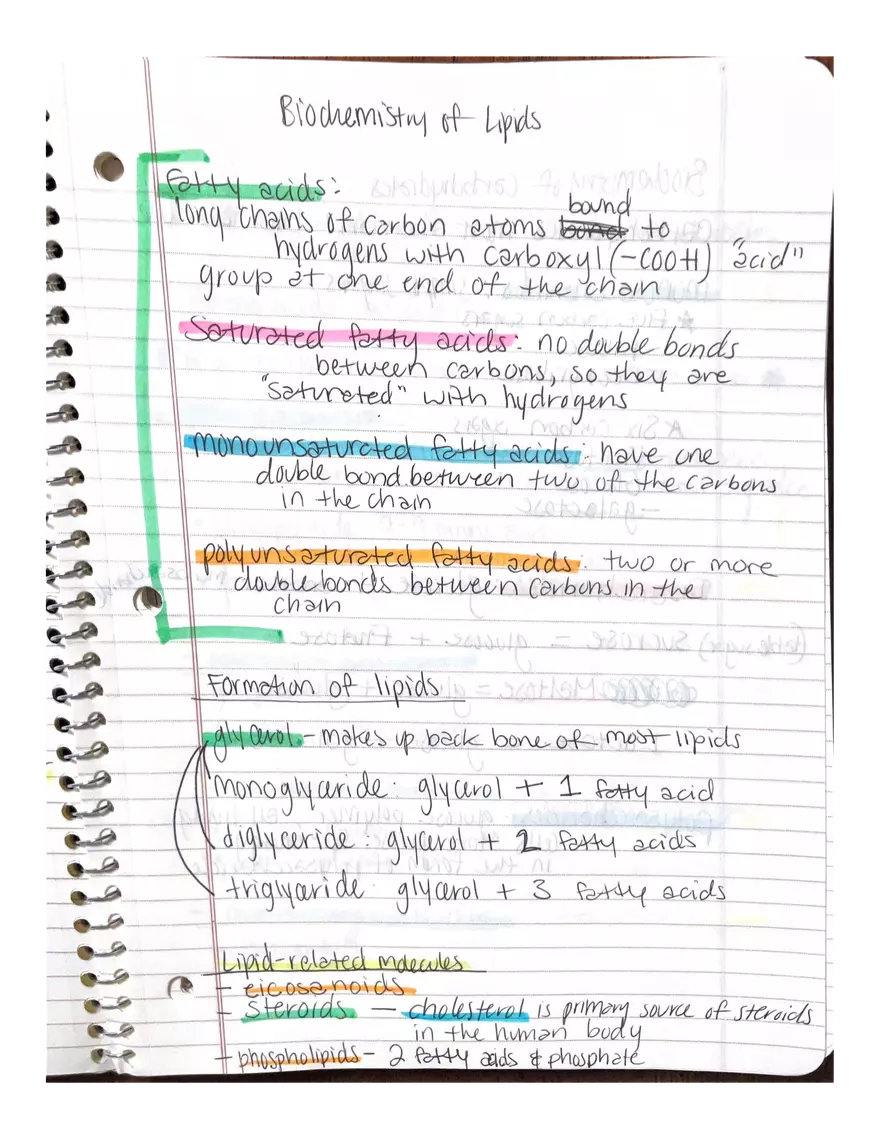 Biochemistry of Lipids
fatty acids:
long chains of carbon atoms bond bound to
hydrogens with carboxyl (-COOH) "acid"
group at one end of the chain
Saturated fatty acids: no double bonds
between carbons, so they are
"saturated" with hydrogens
monounsaturated fatty acids: have one
double bond between two of the carbons
in the chain
polyunsaturated fatty acids: two or more
double bonds between carbons in the
chain
Formation of lipids
glycerol - makes up back bone of most lipids
monoglyceride: glycerol + 1 fatty acid
diglyceride: glycerol + 2 fatty acids
triglyceride: glycerol + 3 fatty acids
Lipid-related molecules
- eicosanoids
- Steroids - cholesterol is primary source of steroids
in the human body
- phospholipids - 2 fatty acids & phosphate